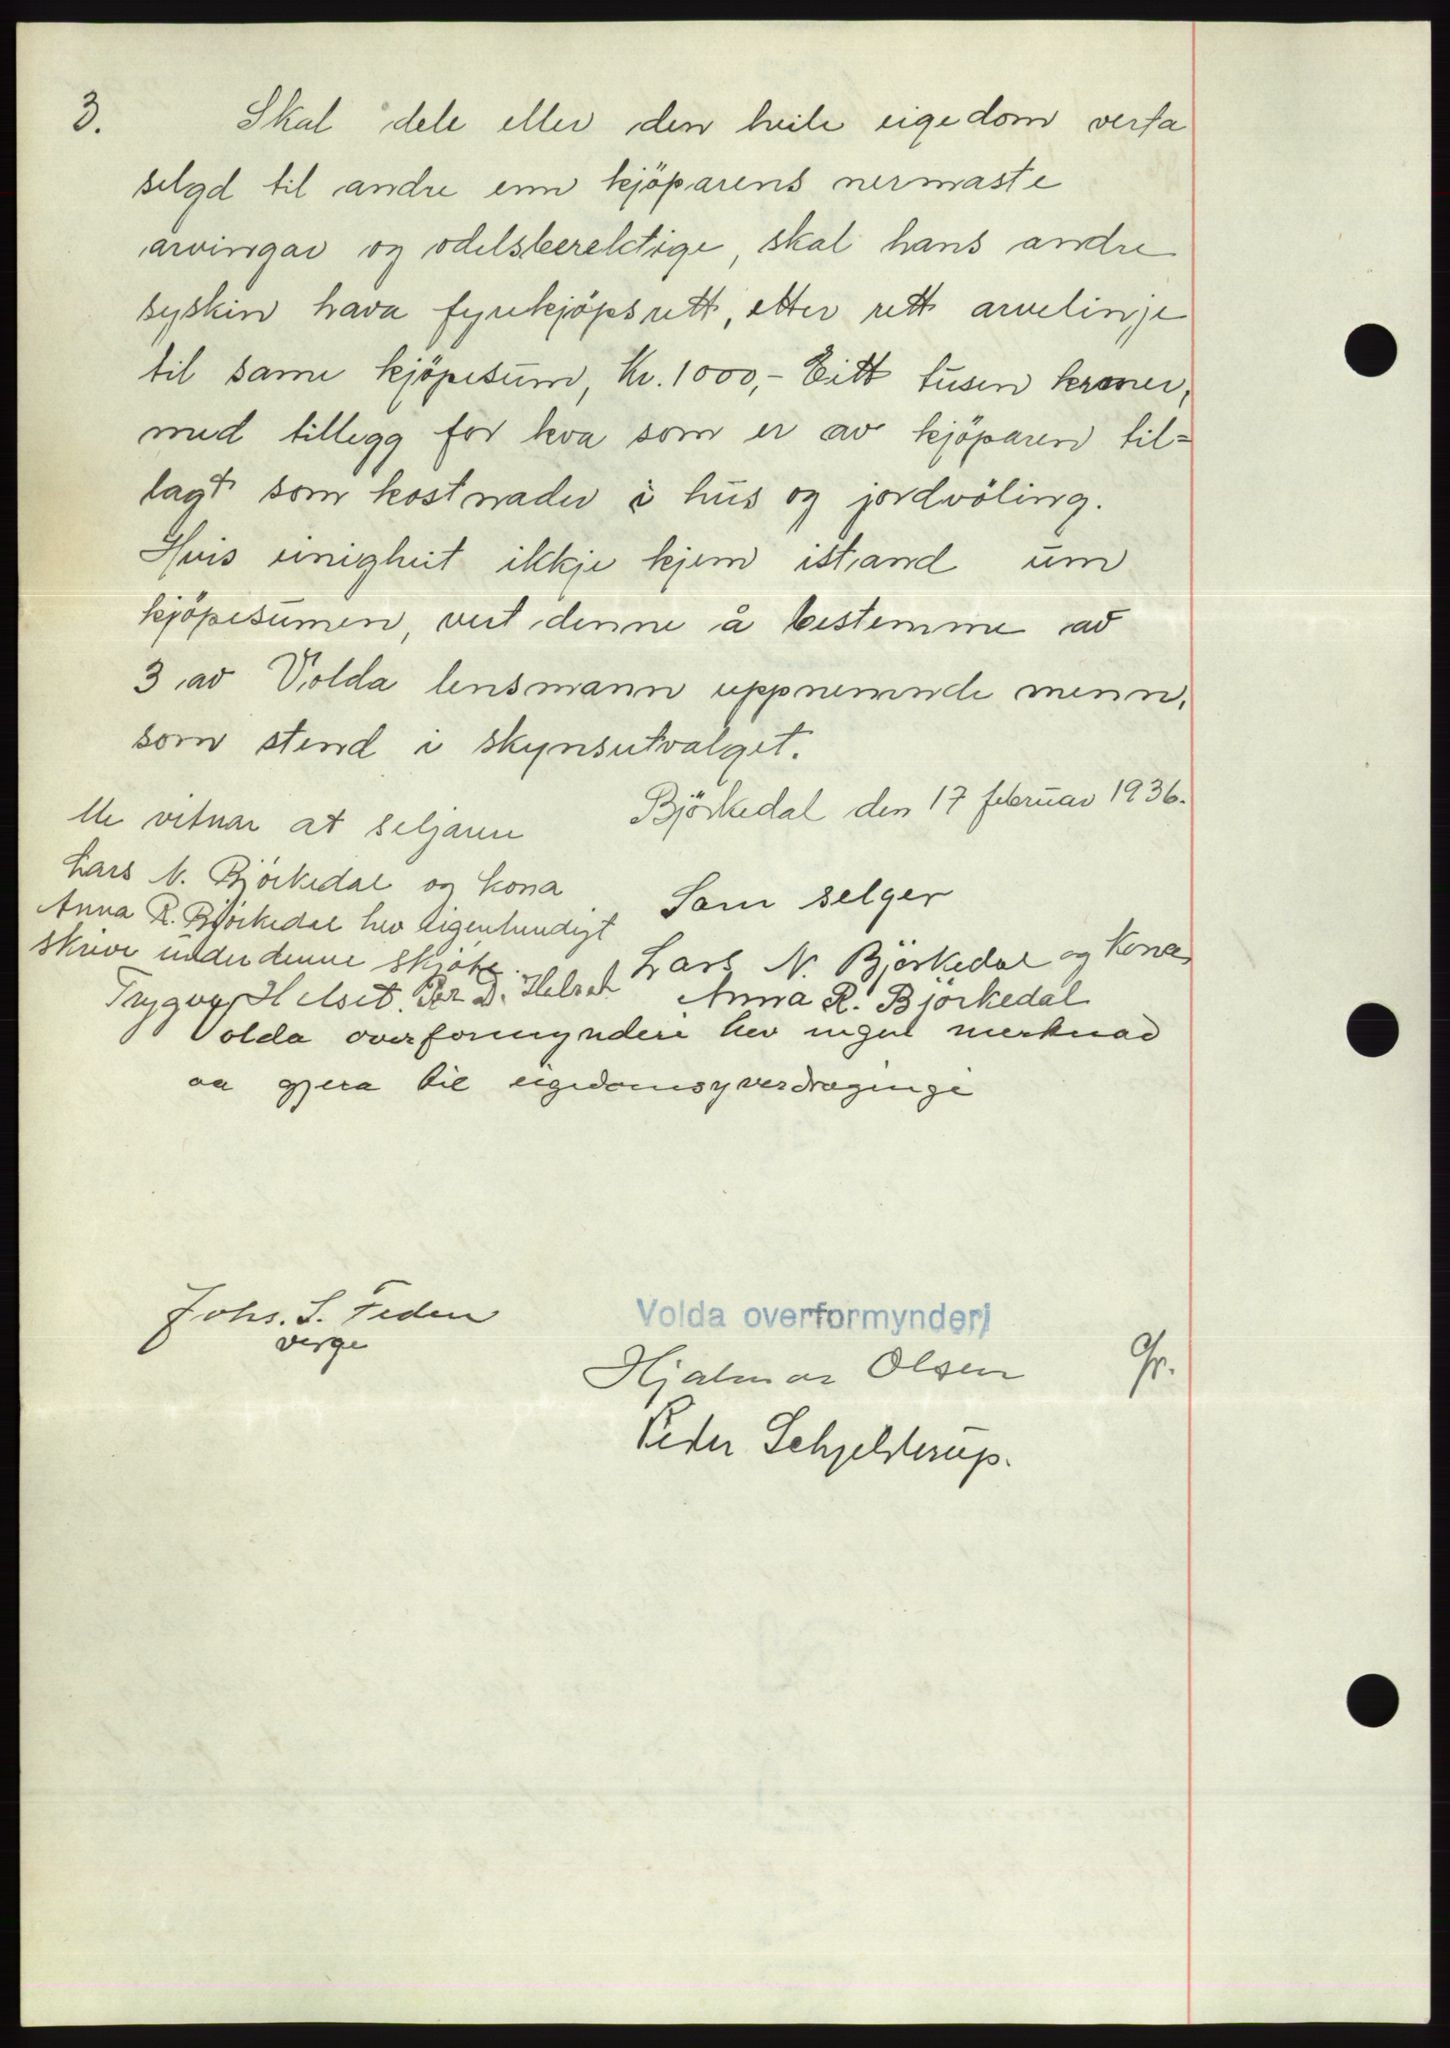 3. Skal dele eller den heile eigedom verta
selgd til andre enn kjöparens nermaste
arvingar og odelsberektige, skal hans andre
syskin hava fyrekjöpsrett, etter rett arvelinje
til same kjöpesum, Kr. 1000,- Eitt tusen kroner,
med tillegg for kva som er av kjöparen til=
lagt som kostnader i hus og jordvöling.
Hvis einigheit ikkje kjem istand um
kjöpesumen, vert denne å bestemme av
3 av Volda lensmann uppnemnde menn,
som stend i skynsutvalget.
Björkedal den 17 februar 1936.
Me vitnar at seljaren
Lars N. Björkedal og kona
Anna R. Björkedal hev eigenhendigt
skrive under denne skjöte.
Trygve Helset. Per D. Helset
Som selger
Lars N. Björkedal og Kona
Anna R. Björkedal
Volda overformynderi hev ingen merknad
aa gjera til eigedomsyverdragingi
Johs. S. Feden
verge
Volda overformynderi
Hjalmar Olsen
Peder Schjelderup.